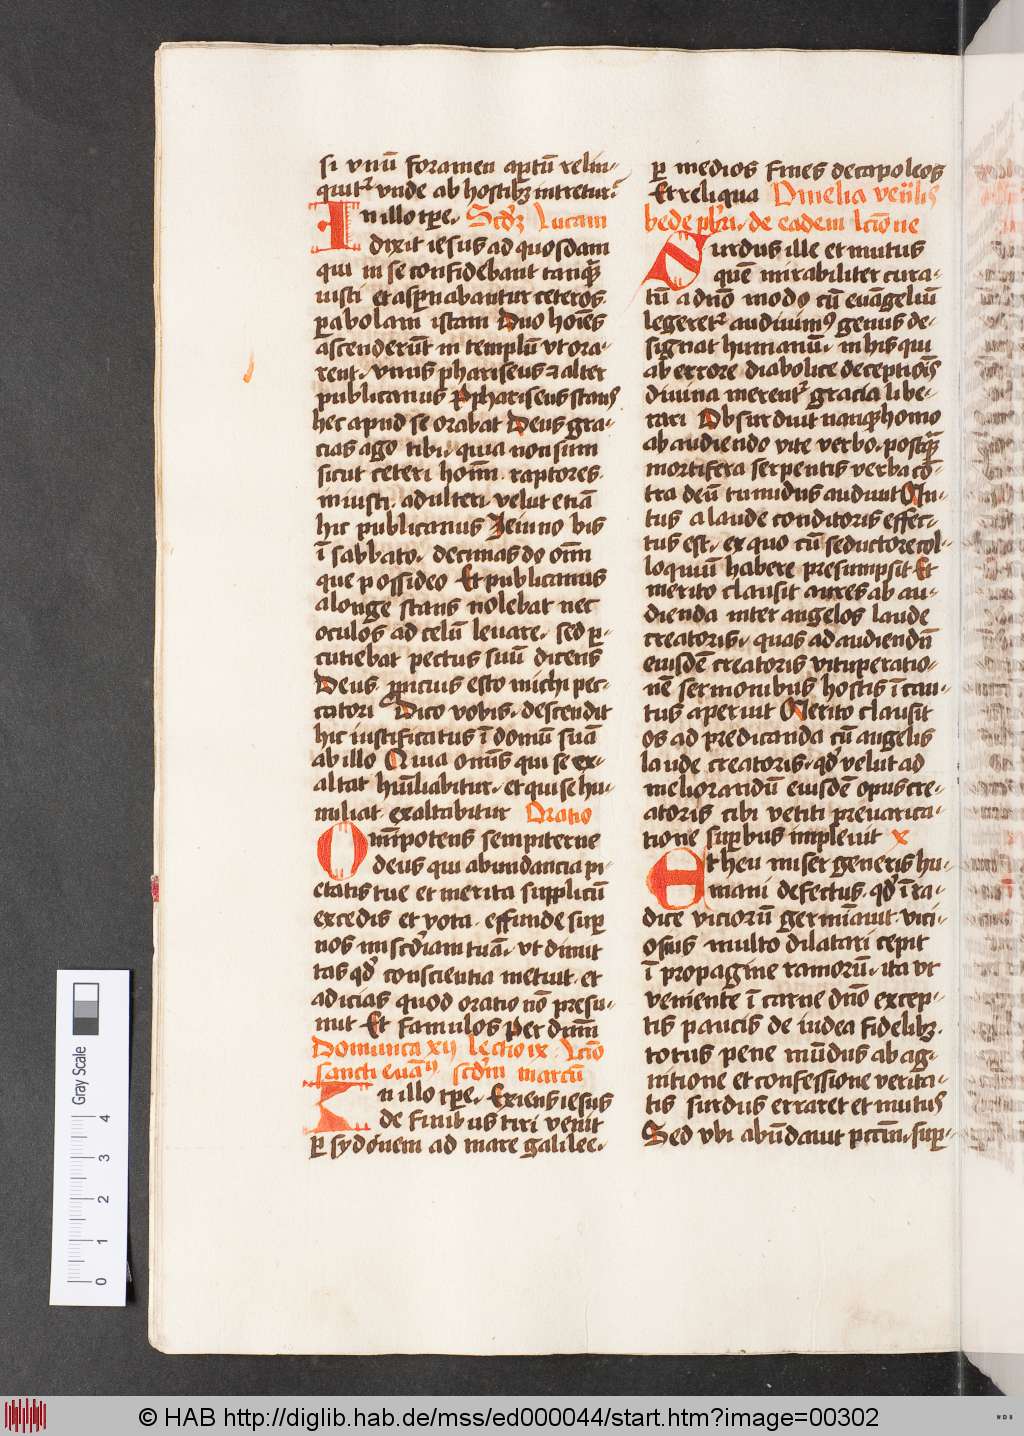 si vnū foramen aptū relin-
quitr vnde ab hostibꝫ intretur
In illo tpe. Scdꝫ Lucam
dixit iesus ad quosdam
qui in se confidebant tanqȝ
iusti et aspnabantur ceteros
pabolam istam Duo hoīes
ascenderūt in templū vt ora-
rent. vnus phariseus ⁊ alter
publicanus Phariseus stans
hec apud se orabat Deus gra-
cias ago tibi. quia non sum
sicut ceteri homī. raptores.
iniusti. adulteri. velut etiā
hic publicanus Jeiuno bis
ī sabbato. decimas do oīm
que possideo Et publicanus
a longe stans nolebat nec
oculos ad celū leuare. sed p-
cutiebat pectus suū dicens
Deus ppicius esto michi pec-
catori Dico vobis. descendit
hic iustificatus ī domū suā
ab illo Quia omīs qui se ex-
altat hūiliabitur. et qui se hu-
miliat exaltabitur Oratio
Omīpotens sempiterne
deus qui abundancia pi-
etatis tue et merita supplicū
excedis et vota. effunde sup
nos miscdiam tuā. vt dimit
tas qd conscientia metuit. et
adicias quod oratio nō presu-
mit Et famulos Per dnm
Dominica xij lectio ix Lcio
sancti euāii scdm marcū
In illo tpe. Exiens iesus
de finibus tiri venit
p sydonem ad mare galilee.
p medios fines decapoleos
Et reliqua Omelia venlis
bede pbri. de eadem lcione
Surdus ille et mutus
quem mirabiliter cura-
tū a dno modo cū euāgeliū
legeretr audiuimꝰ genus de-
signat humanū. in his qui
ab errore diabolice deceptiōis
diuina meretr gracia libe-
rari Obsurduit nanqȝ homo
ab audiendo vite verbo. postqȝ
mortifera serpentis verba cō-
tra deū tumidus audiuit Mu-
tus a laude conditoris effec-
tus est. ex quo cū seductore col-
loquiū habere presumpsit Et
merito clausit aures ab au-
dienda inter angelos laude
creatoris. quas ad audiendū
eiusdē creatoris vituperatio-
nē sermonibus hostis īcau-
tus aperuit Merito clausit
os ad predicanda cū angelis
laude creatoris. qd velut ad
meliorandū eiusdē opus cre-
atoris cibi vetiti preuarica-
tione supbus impleuit x
Et heu miser generis hu-
mani defectus. qd ī ra-
dice viciorū germīauit. vici-
osius multo dilatari cepit
ī propagine ramorū. ita vt
veniente ī carne dno excep-
tis paucis de iudea fidelibꝫ.
totus pene mūdus ab ag-
nitione et confessione verita-
tis surdus erraret et mutus
Sed vbi abūdauit pccm. sup-
Gray Scale
0 1 2 3 4
© HAB http://diglib.hab.de/mss/ed000044/start.htm?image=00302